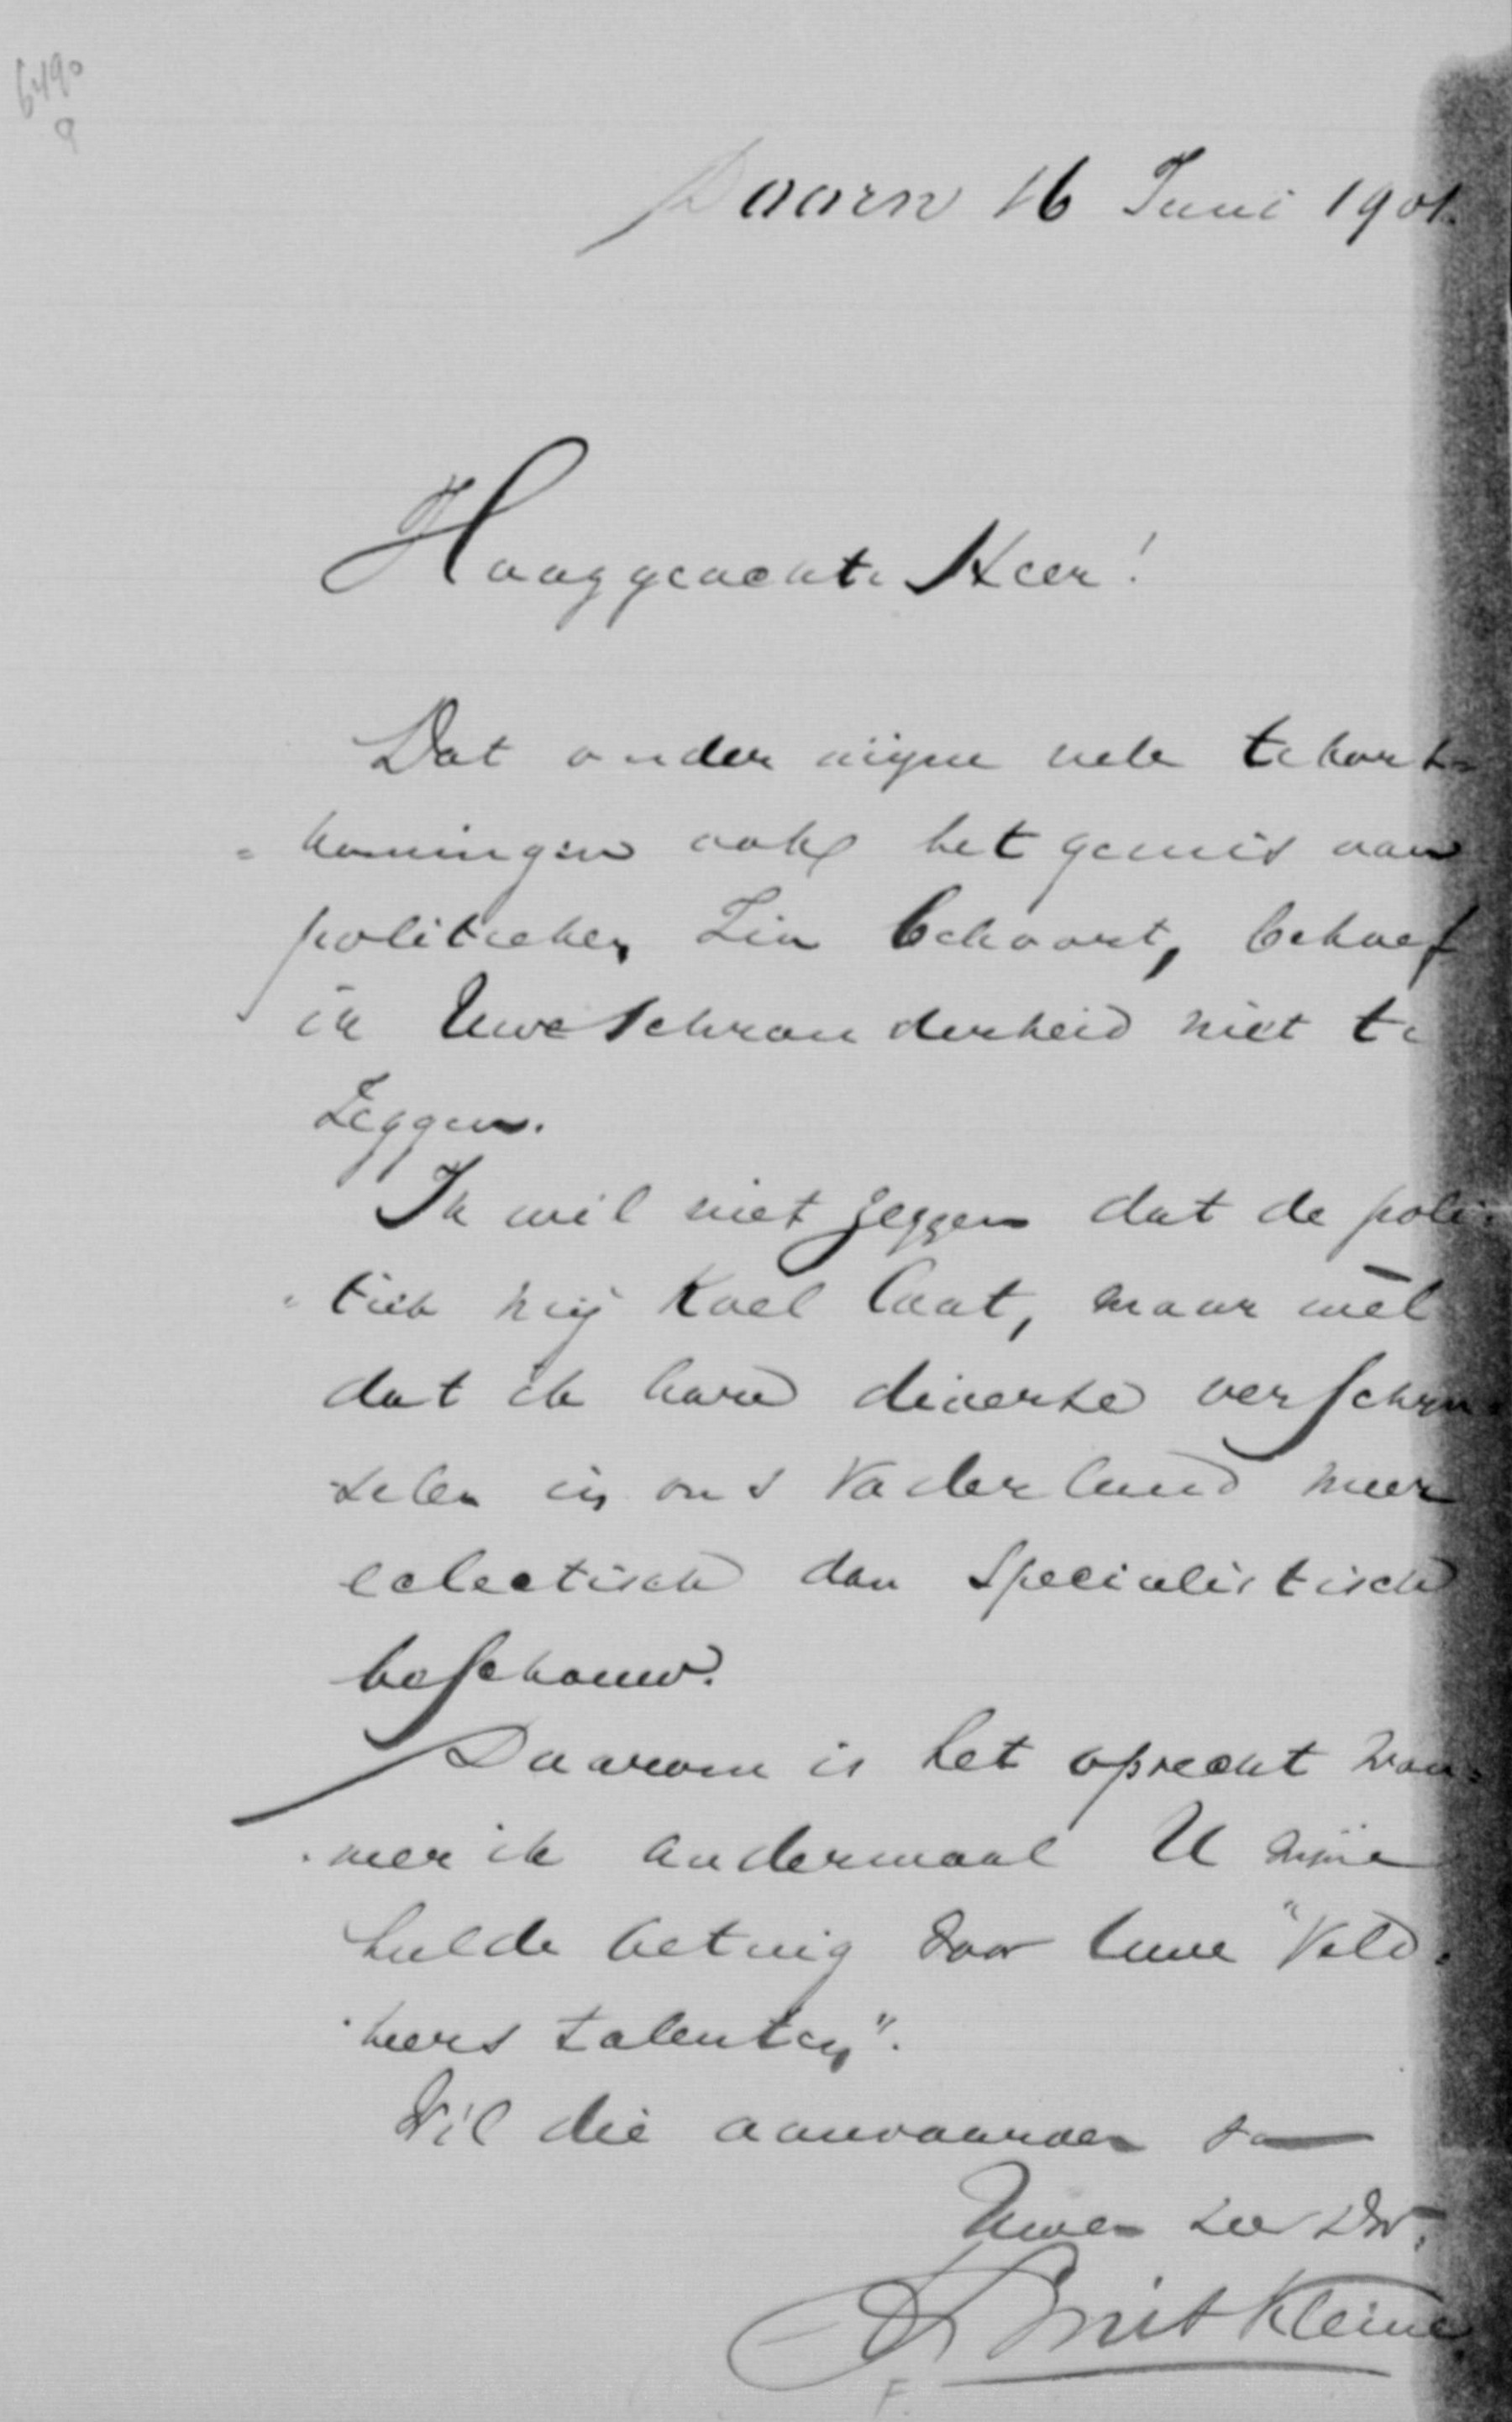 6490
9
Doorn 16 Juni 1901.
Hooggeachte Heer!
Dat onder mijne vele tekort=
= komingen ook het gemis aan
politieken zin behoort, behoef
ik Uwe schranderheid niet te
zeggen.
Ik wil niet zeggen dat de poli-
tiek mij koel laat, maar wèl
dat ik hare diverse verschijn-
selen in ons Vaderland meer
eclectisch dan specialistisch
beschouw.
Daarom is het oprecht wan=
neer ik andermaal U mijne
hulde betuig voor Uwe "Veld-
heers talenten".
Wil die aanvaarden van
Uwen zeer Dw.
Smit Kleine
F.